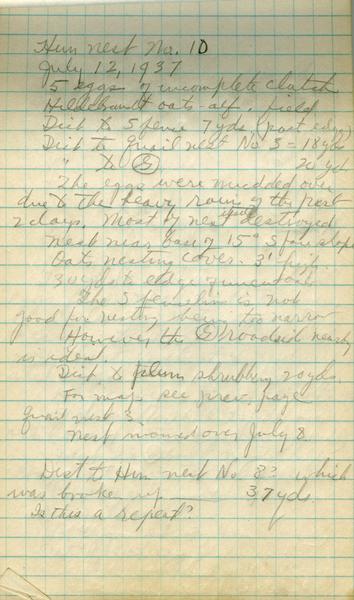 Hun nest No. 10
July 12, 1937
5 eggs of incomplete clutch
Hildebrandt oats-alf. field
Dist to S fence 7 yds, (past edge)
Dist to Quail nest No 3 = 18 yds
" to S 20 yds
The eggs were mudded over
due to the heavy rains of the past
2 days. Most of nest itself destroyed
Nest near base of 15° S facing slope
Oats nesting cover. 3' high.
3 yds to edge of uncut oats
The S fenceline is not
good for nesting being too narrow
However the S roadside nearby
is ideal
Dist to plum shrubbery 20 yds.
For map see prev. page
Quail nest 3.
Nest mowed over July 8
Dist to Hun nest No 8? which
was broken up 37 yds.
Is this a repeat?